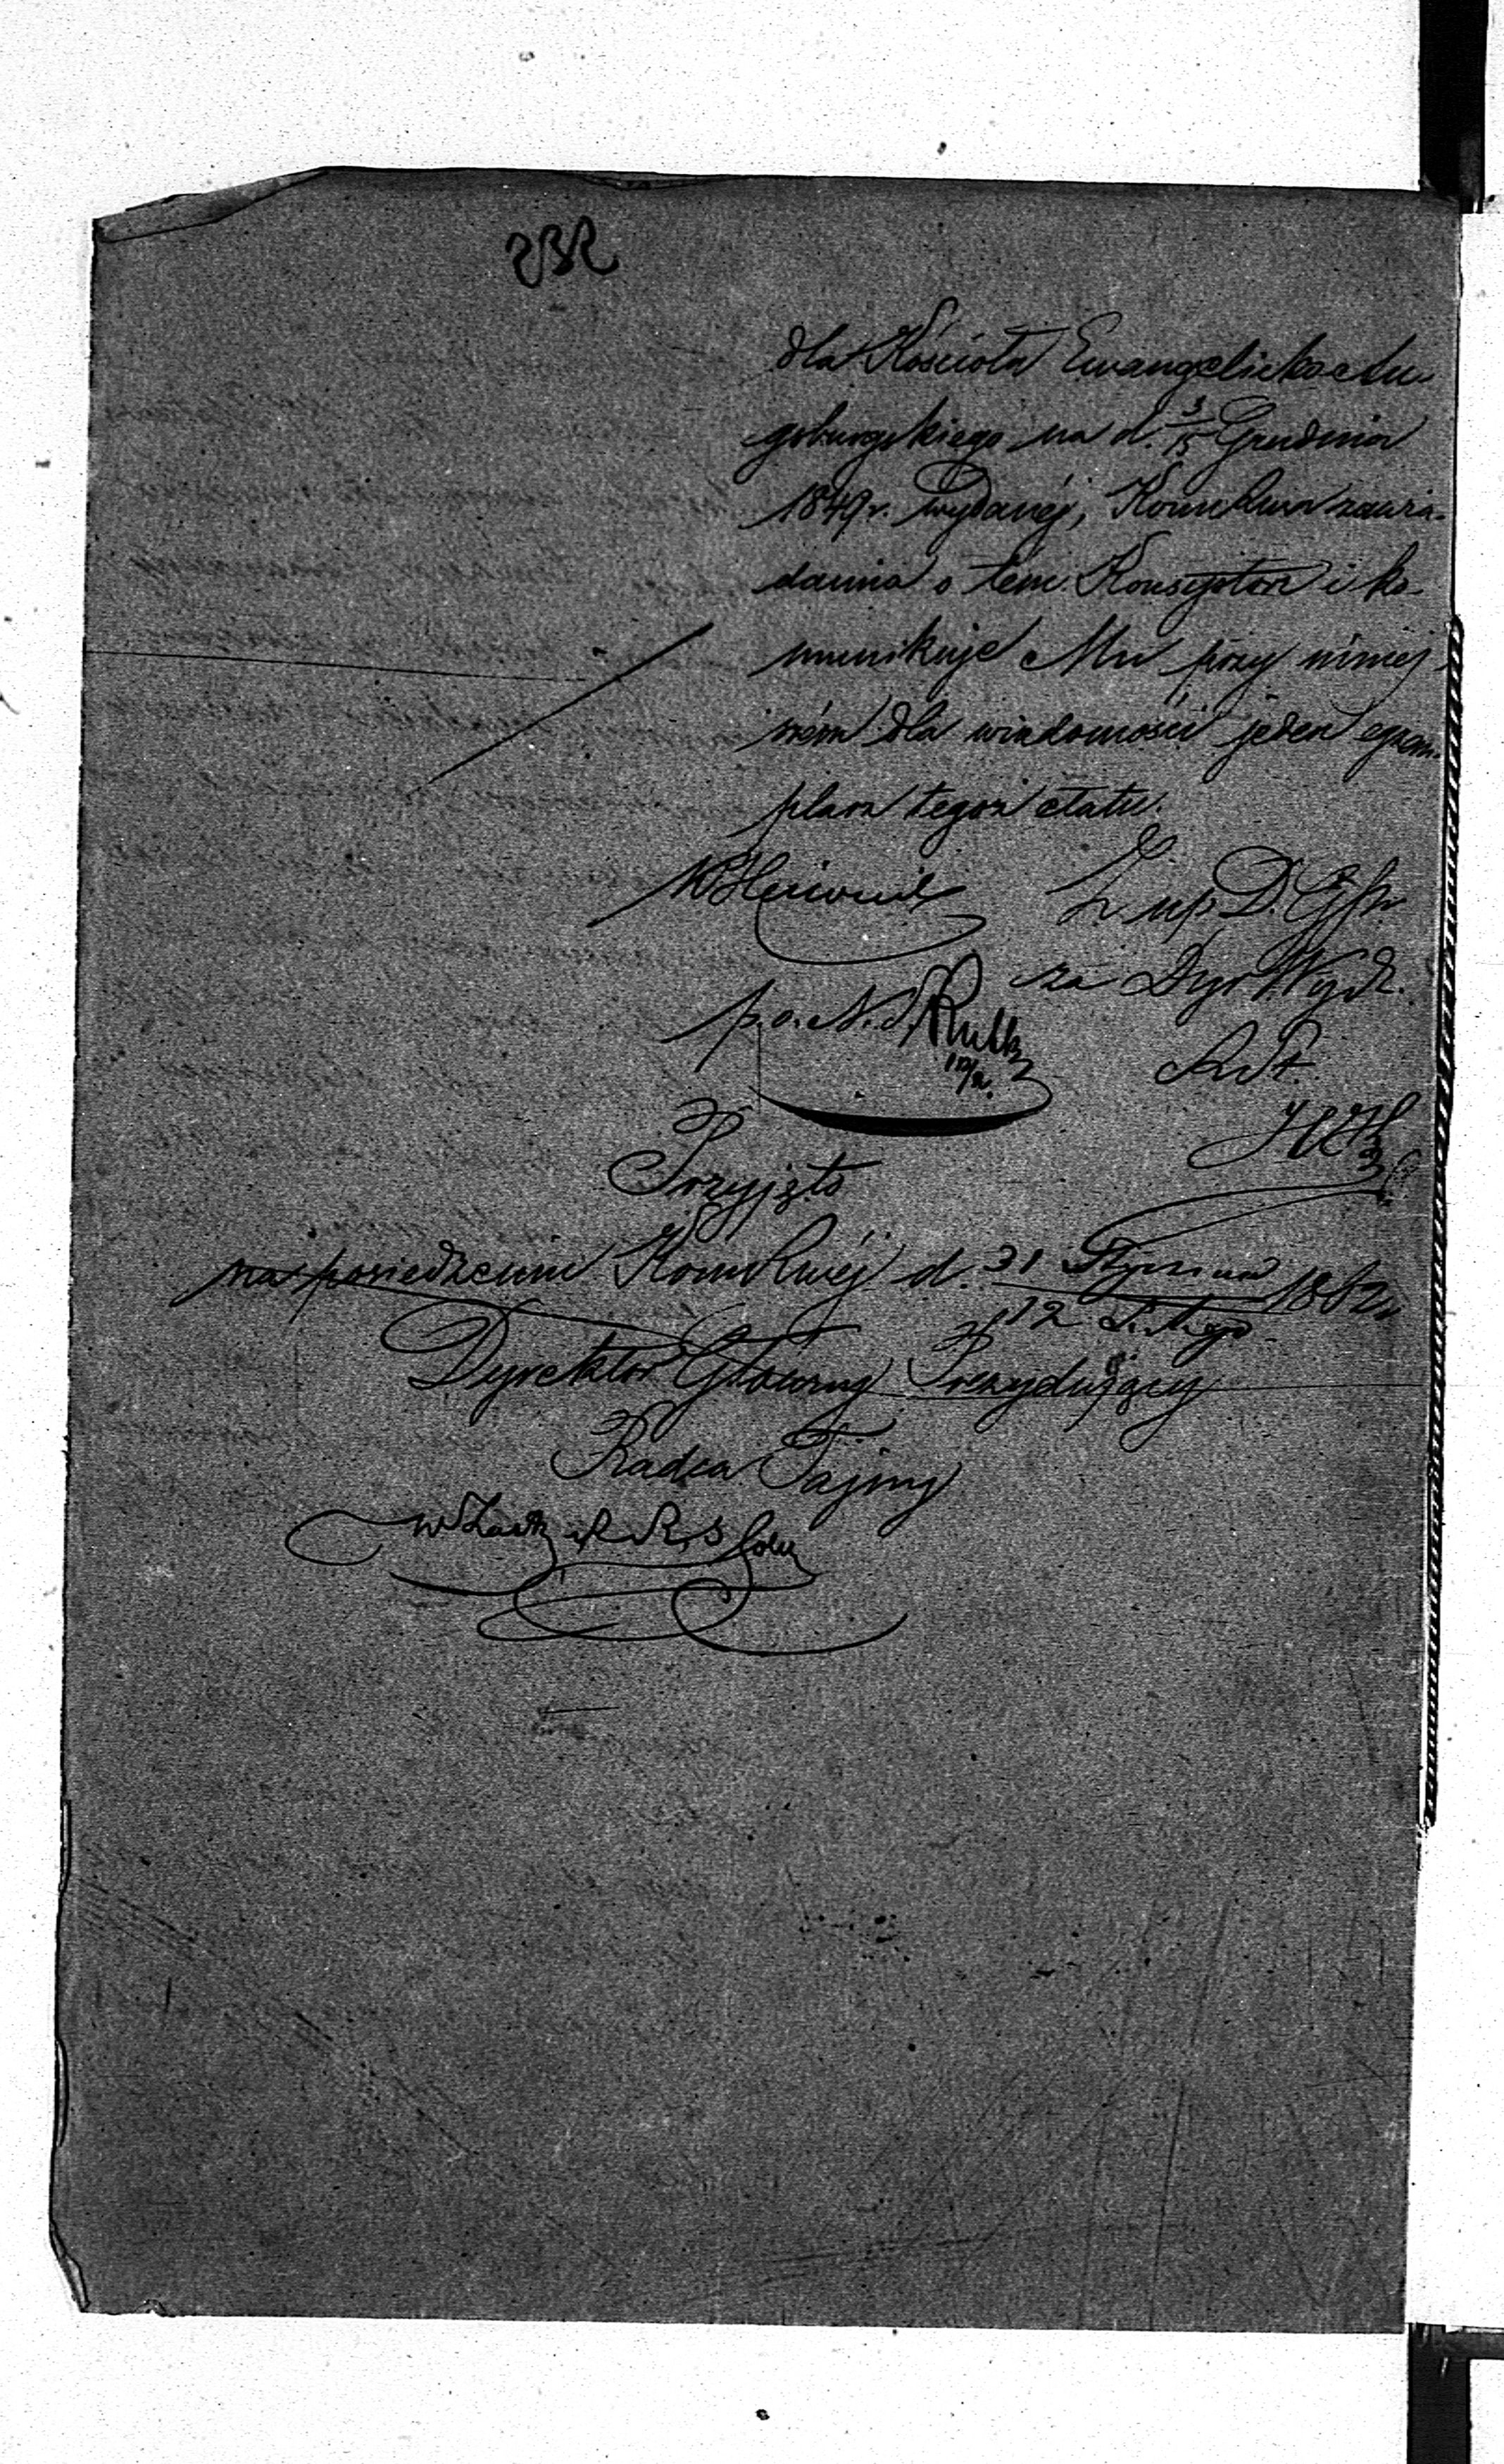 dla Kościoła Ewangelicko Au-
gsburgskiego na d. 3/15 Grudnia
1849 r. wydanéj, Kom. Rząwa zawia-
damia o tém Konsystorz i ko-
munikuje Mu przy niniej
szém dla wiadomości jeden egzem-
plarz tegoż etatu.
Z up. D. Gł.
za Dyr. Wydz.
p. o. N. S.
R. St.
Przyjęto
na posiedzeniu Kom Rwéj d. 31 Stycznia / 12 Lutego 1862 r.
Dyrektor Główny Prezydujący
Radca Tajny